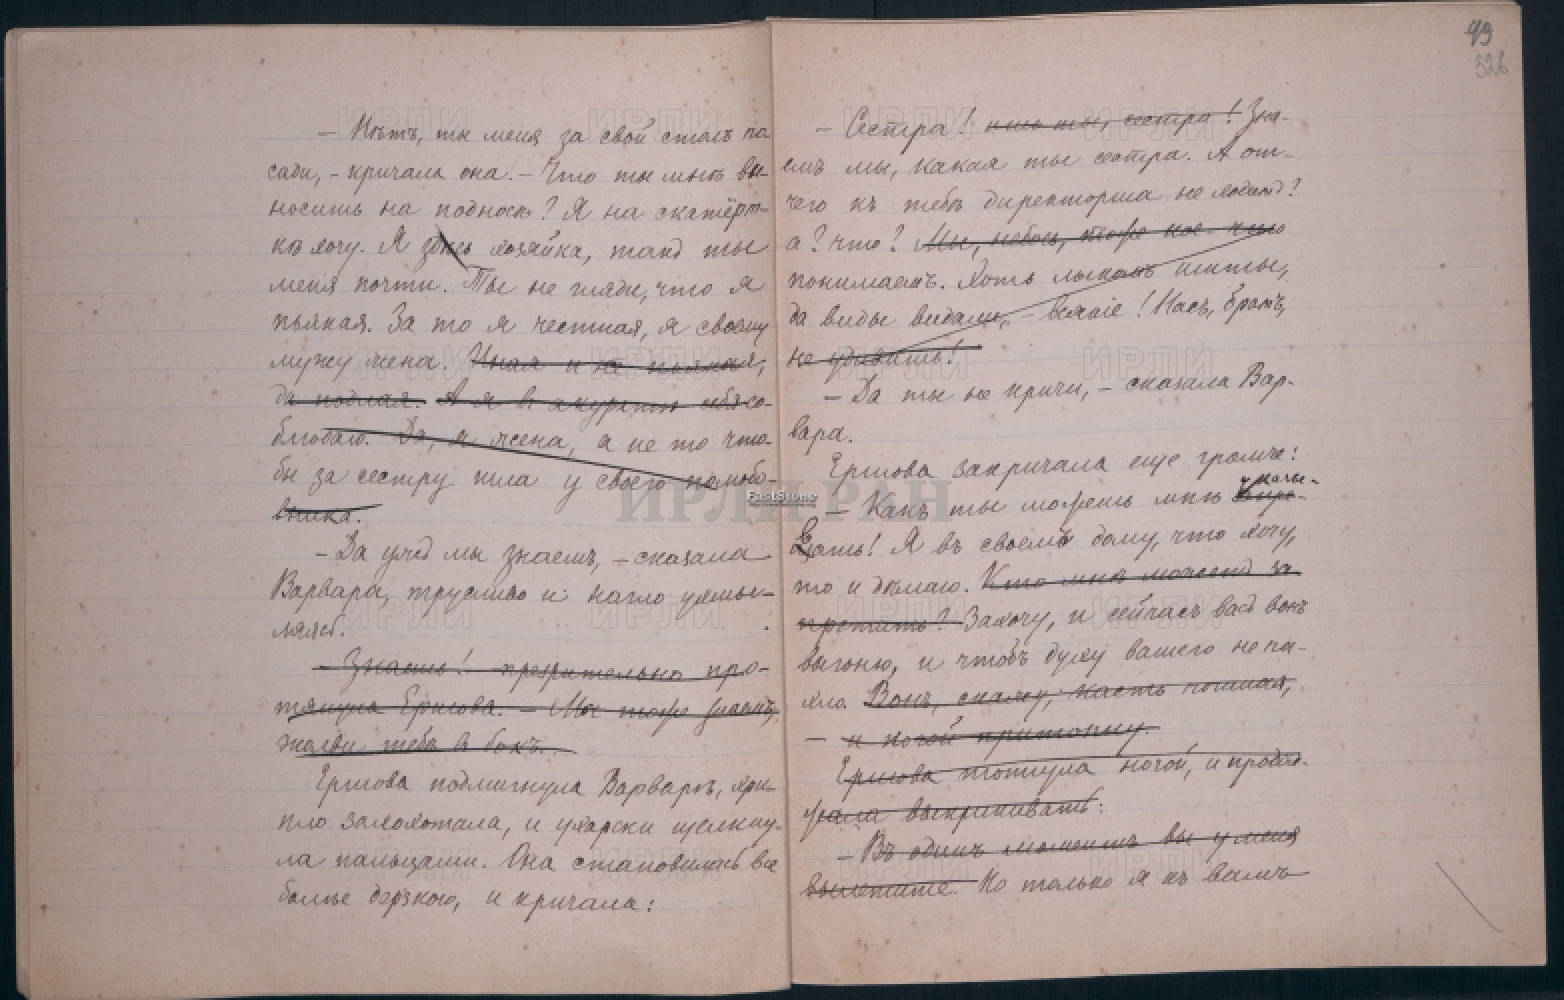 — Нѣтъ, ты меня за свой столъ по
сади, – кричала она. – Что ты мнѣ вы-
носишь на подносѣ? Я на скатёрт-
кѣ хочу. Я здѣсь хозяйка, такъ ты
меня почти. Ты не гляди, что я
пьяная. За то я честная, я своему
мужу жена. Иная и не пьяная,
да подлая. А я в акуратѣ себя со-
блюдаю. Да, я жена, а не то что-
бы за сестру жила у своего полюбо-
вника.
– Да ужъ мы знаемъ, – сказала
Варвара, трусливо и нагло ухмы-
ляясь.
– Знаешь! презрительно про-
тянула Ершова. – Мы тоже знаемъ,
тебѣ въ бокъ.
Ершова подмигнула Варварѣ, хри-
пло захохотала, и ухарски щелкну-
ла пальцами. Она становилась все
болѣе дерзкою, и кричала:
99
326
– Сестра! ишь ты, сестра! Зна-
емъ мы, какая ты сестра. А от-
чего къ тебѣ директорша не ходитъ?
а? что? Мы, небось, тоже кое-что
понимаемъ. Хоть лыкомъ шиты,
да виды видали, – всякіе! Насъ, братъ,
не удивишь!
– Да ты не кричи, – сказала Вар-
вара.
Ершова закричала еще громче:
– Какъ ты можешь мнѣ
щать! Я въ своемъ дому, что хочу,
то и дѣлаю. Кто мнѣ можетъ за
претить? Захочу, и сейчасъ васъ вонъ
выгоню, и чтобъ духу вашего не па-
хло. Вонъ, скажу,
– и ногой притопну.
Ершова топнула ногой, и продол-
жала выкрикивать:
– Въ одинъ моментъ вы у меня
вылетите. Но только я къ вамъ